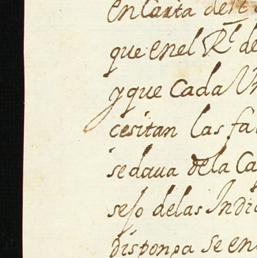 en Carta de
que en el Rl de
y que Cada Un
cesitan las fal
se dava de la Ca
sejo de las Indi
se en